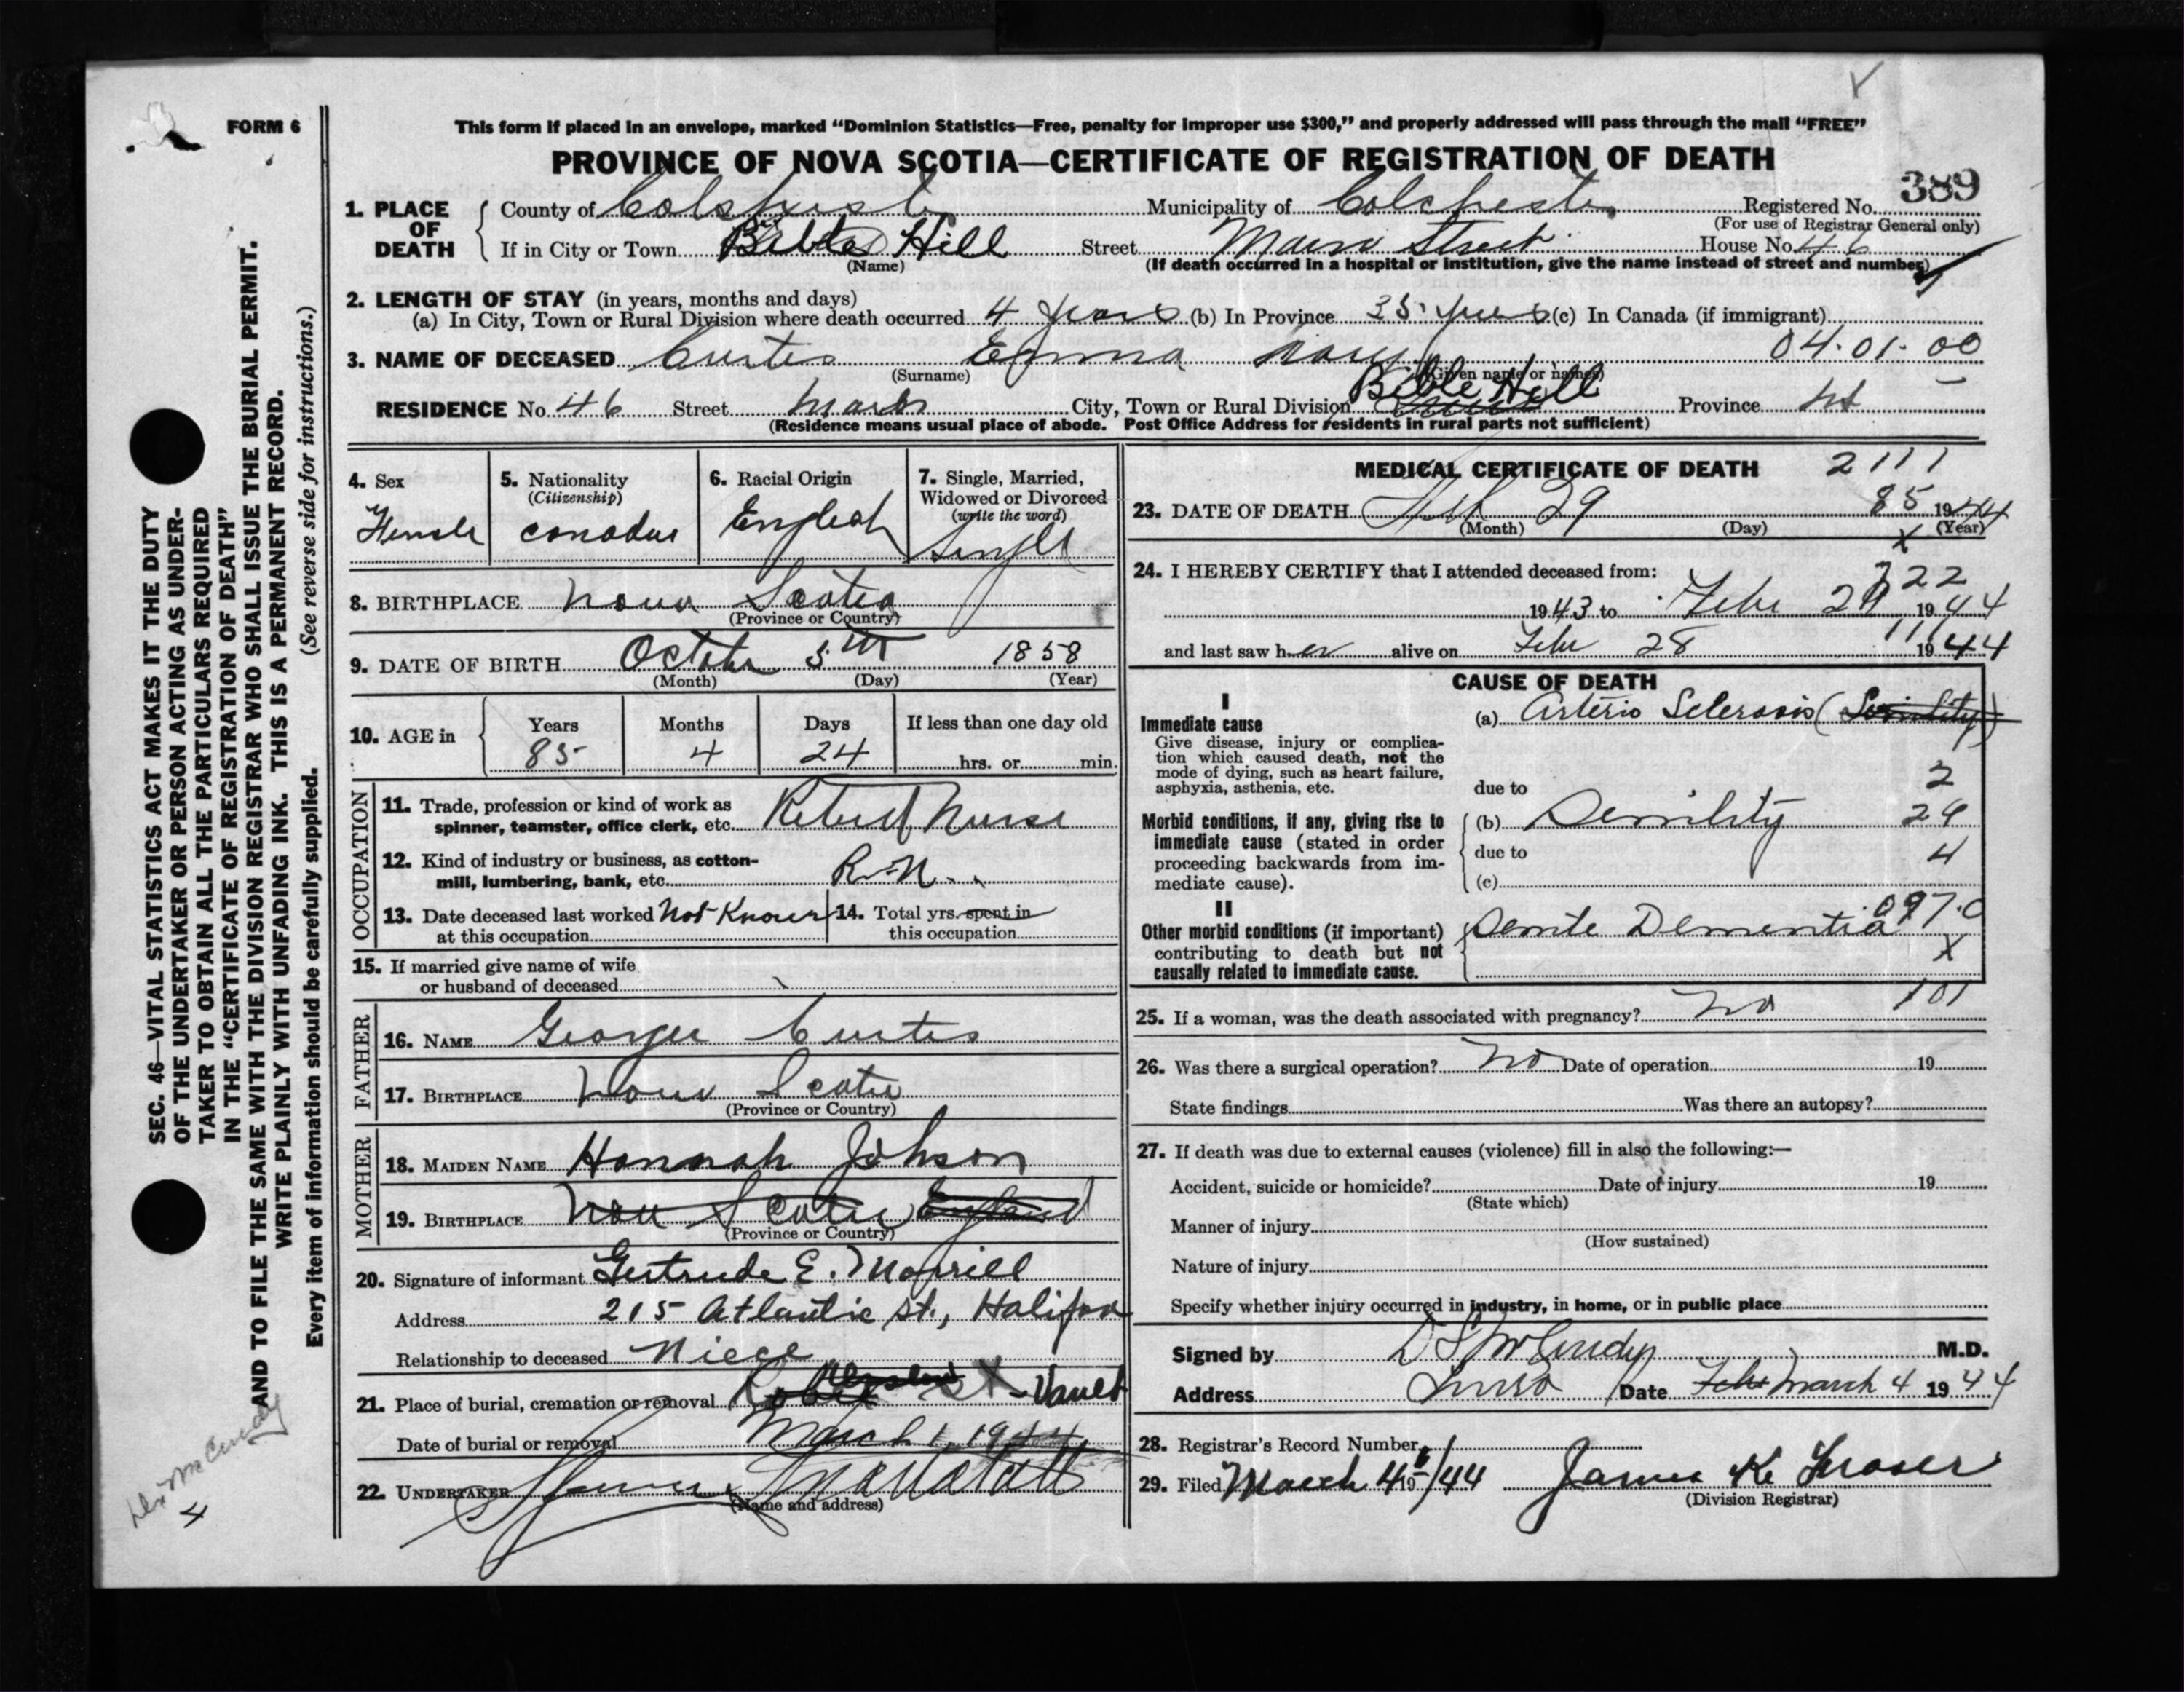 FORM 6
This form if placed in an envelope, marked "Dominion Statistics—Free, penalty for improper use $300," and properly addressed will pass through the mail "FREE"
PROVINCE OF NOVA SCOTIA—CERTIFICATE OF REGISTRATION OF DEATH
389
1. PLACE OF DEATH
County of Colchester Municipality of Colchester Registered No.
(For use of Registrar General only)
If in City or Town Bible Hill Street Main Street House No. 46
(Name) (If death occurred in a hospital or institution, give the name instead of street and number)
2. LENGTH OF STAY (in years, months and days)
(a) In City, Town or Rural Division where death occurred 4 years (b) In Province 35 years (c) In Canada (if immigrant)
04.01.00
3. NAME OF DECEASED Curtis Emma Mary
(Surname) (Given name or names)
RESIDENCE No. 46 Street Main City, Town or Rural Division Bible Hill Province NS
(Residence means usual place of abode. Post Office Address for residents in rural parts not sufficient)
4. Sex
Female
5. Nationality
(Citizenship)
Canadian
6. Racial Origin
English
7. Single, Married, Widowed or Divorced
(write the word)
Single
8. BIRTHPLACE Nova Scotia
(Province or Country)
9. DATE OF BIRTH October 5th 1858
(Month) (Day) (Year)
10. AGE in
Years Months Days If less than one day old
85 4 24 hrs. or min.
OCCUPATION
11. Trade, profession or kind of work as
spinner, teamster, office clerk, etc. Retired Nurse
12. Kind of industry or business, as cotton-
mill, lumbering, bank, etc. R.N.
13. Date deceased last worked Not Known
at this occupation
14. Total yrs. spent in
this occupation
15. If married give name of wife
or husband of deceased
FATHER
16. NAME George Curtis
17. BIRTHPLACE Nova Scotia
(Province or Country)
MOTHER
18. MAIDEN NAME Hannah Johson
19. BIRTHPLACE Nova Scotia England
(Province or Country)
20. Signature of informant Gertrude E. Morrill
Address 215 Atlantic St., Halifax
Relationship to deceased Niece
21. Place of burial, cremation or removal Robie St - Vault
Date of burial or removal March 1, 1944
22. UNDERTAKER
(Name and address)
MEDICAL CERTIFICATE OF DEATH 2111
23. DATE OF DEATH Feb 29 85 1944
(Month) (Day) (Year)
X
24. I HEREBY CERTIFY that I attended deceased from:
722
1943 to Feby 29 1944
111
and last saw her alive on Feby 28 1944
CAUSE OF DEATH
I
Immediate cause
Give disease, injury or complica-
tion which caused death, not the
mode of dying, such as heart failure,
asphyxia, asthenia, etc.
(a) Arterio Sclerosis (Senility)
2
due to
Morbid conditions, if any, giving rise to
immediate cause (stated in order
proceeding backwards from im-
mediate cause).
(b) Senility 29
due to 4
(c)
II
Other morbid conditions (if important)
contributing to death but not
causally related to immediate cause.
Senile Dementia 097.0
X
101
25. If a woman, was the death associated with pregnancy? No
26. Was there a surgical operation? No Date of operation 19
State findings Was there an autopsy?
27. If death was due to external causes (violence) fill in also the following:—
Accident, suicide or homicide? Date of injury 19
(State which)
Manner of injury
(How sustained)
Nature of injury
Specify whether injury occurred in industry, in home, or in public place
Signed by D S McCurdy M.D.
Address Truro Date Feb March 4 1944
28. Registrar's Record Number
29. Filed March 4th 19/44 James K Fraser
(Division Registrar)
SEC. 46—VITAL STATISTICS ACT MAKES IT THE DUTY
OF THE UNDERTAKER OR PERSON ACTING AS UNDER-
TAKER TO OBTAIN ALL THE PARTICULARS REQUIRED
IN THE "CERTIFICATE OF REGISTRATION OF DEATH"
AND TO FILE THE SAME WITH THE DIVISION REGISTRAR WHO SHALL ISSUE THE BURIAL PERMIT.
WRITE PLAINLY WITH UNFADING INK. THIS IS A PERMANENT RECORD.
Every item of information should be carefully supplied. (See reverse side for instructions.)
Dr. McCurdy
4